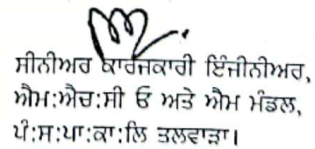 ਸੀਨੀਅਰ ਕਾਰਜਕਾਰੀ ਇੰਜੀਨੀਅਰ,
ਐਮ:ਐਚ:ਸੀ ਓ ਅਤੇ ਐਮ ਮੰਡਲ,
ਪੰ:ਸ:ਪਾ:ਕਾ:ਲਿ ਤਲਵਾੜਾ।